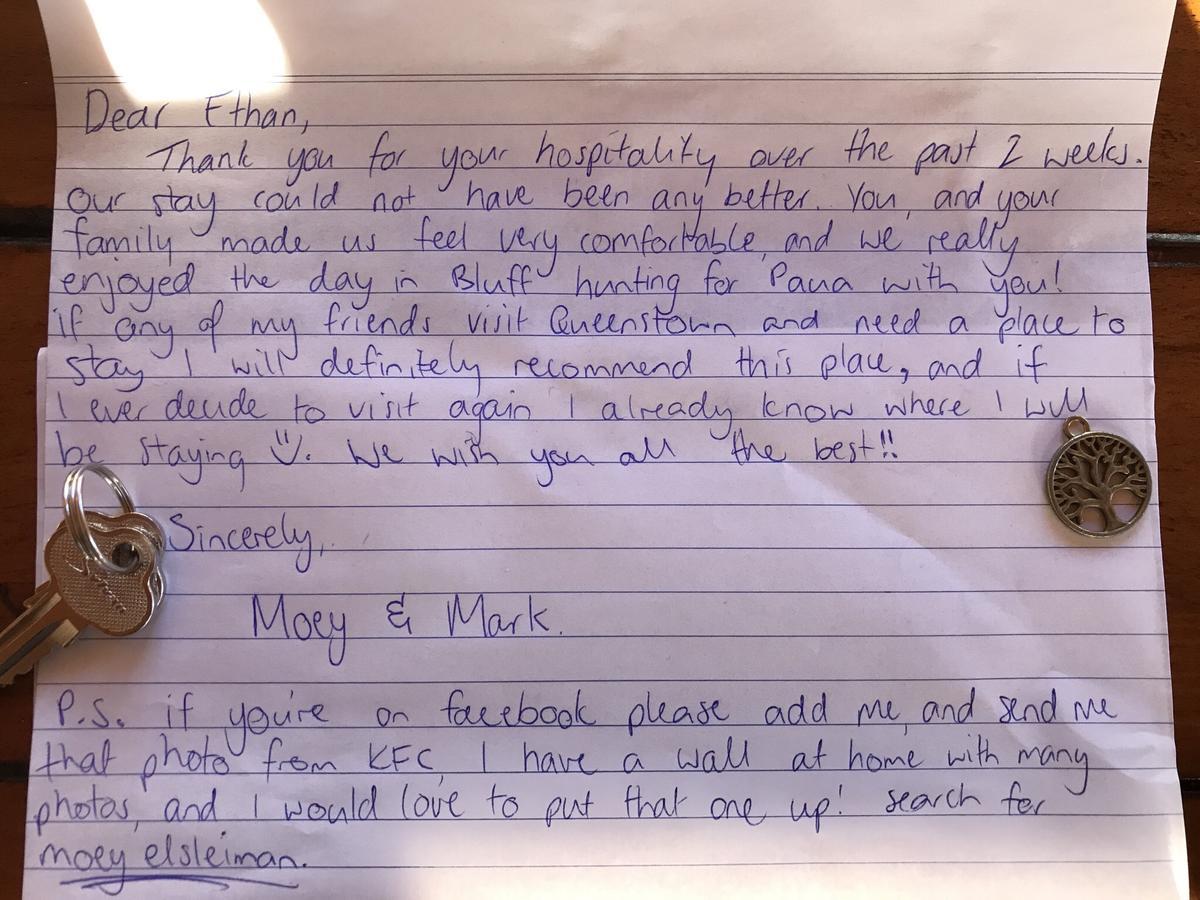 Dear Ethan,
Thank you for your hospitality over the past 2 weeks.
Our stay could not have been any better. You, and your
family made us feel very comfortable, and we really
enjoyed the day in Bluff hunting for Paua with you!
if any of my friends visit Queenstown and need a place to
stay I will definitely recommend this place, and if
I ever decide to visit again I already know where I will
be staying Ü. We wish you all the best!!
Sincerely,
Moey & Mark.
P.S. if you're on facebook please add me, and send me
that photo from KFC, I have a wall at home with many
photos, and I would love to put that one up! search for
moey elsleiman.